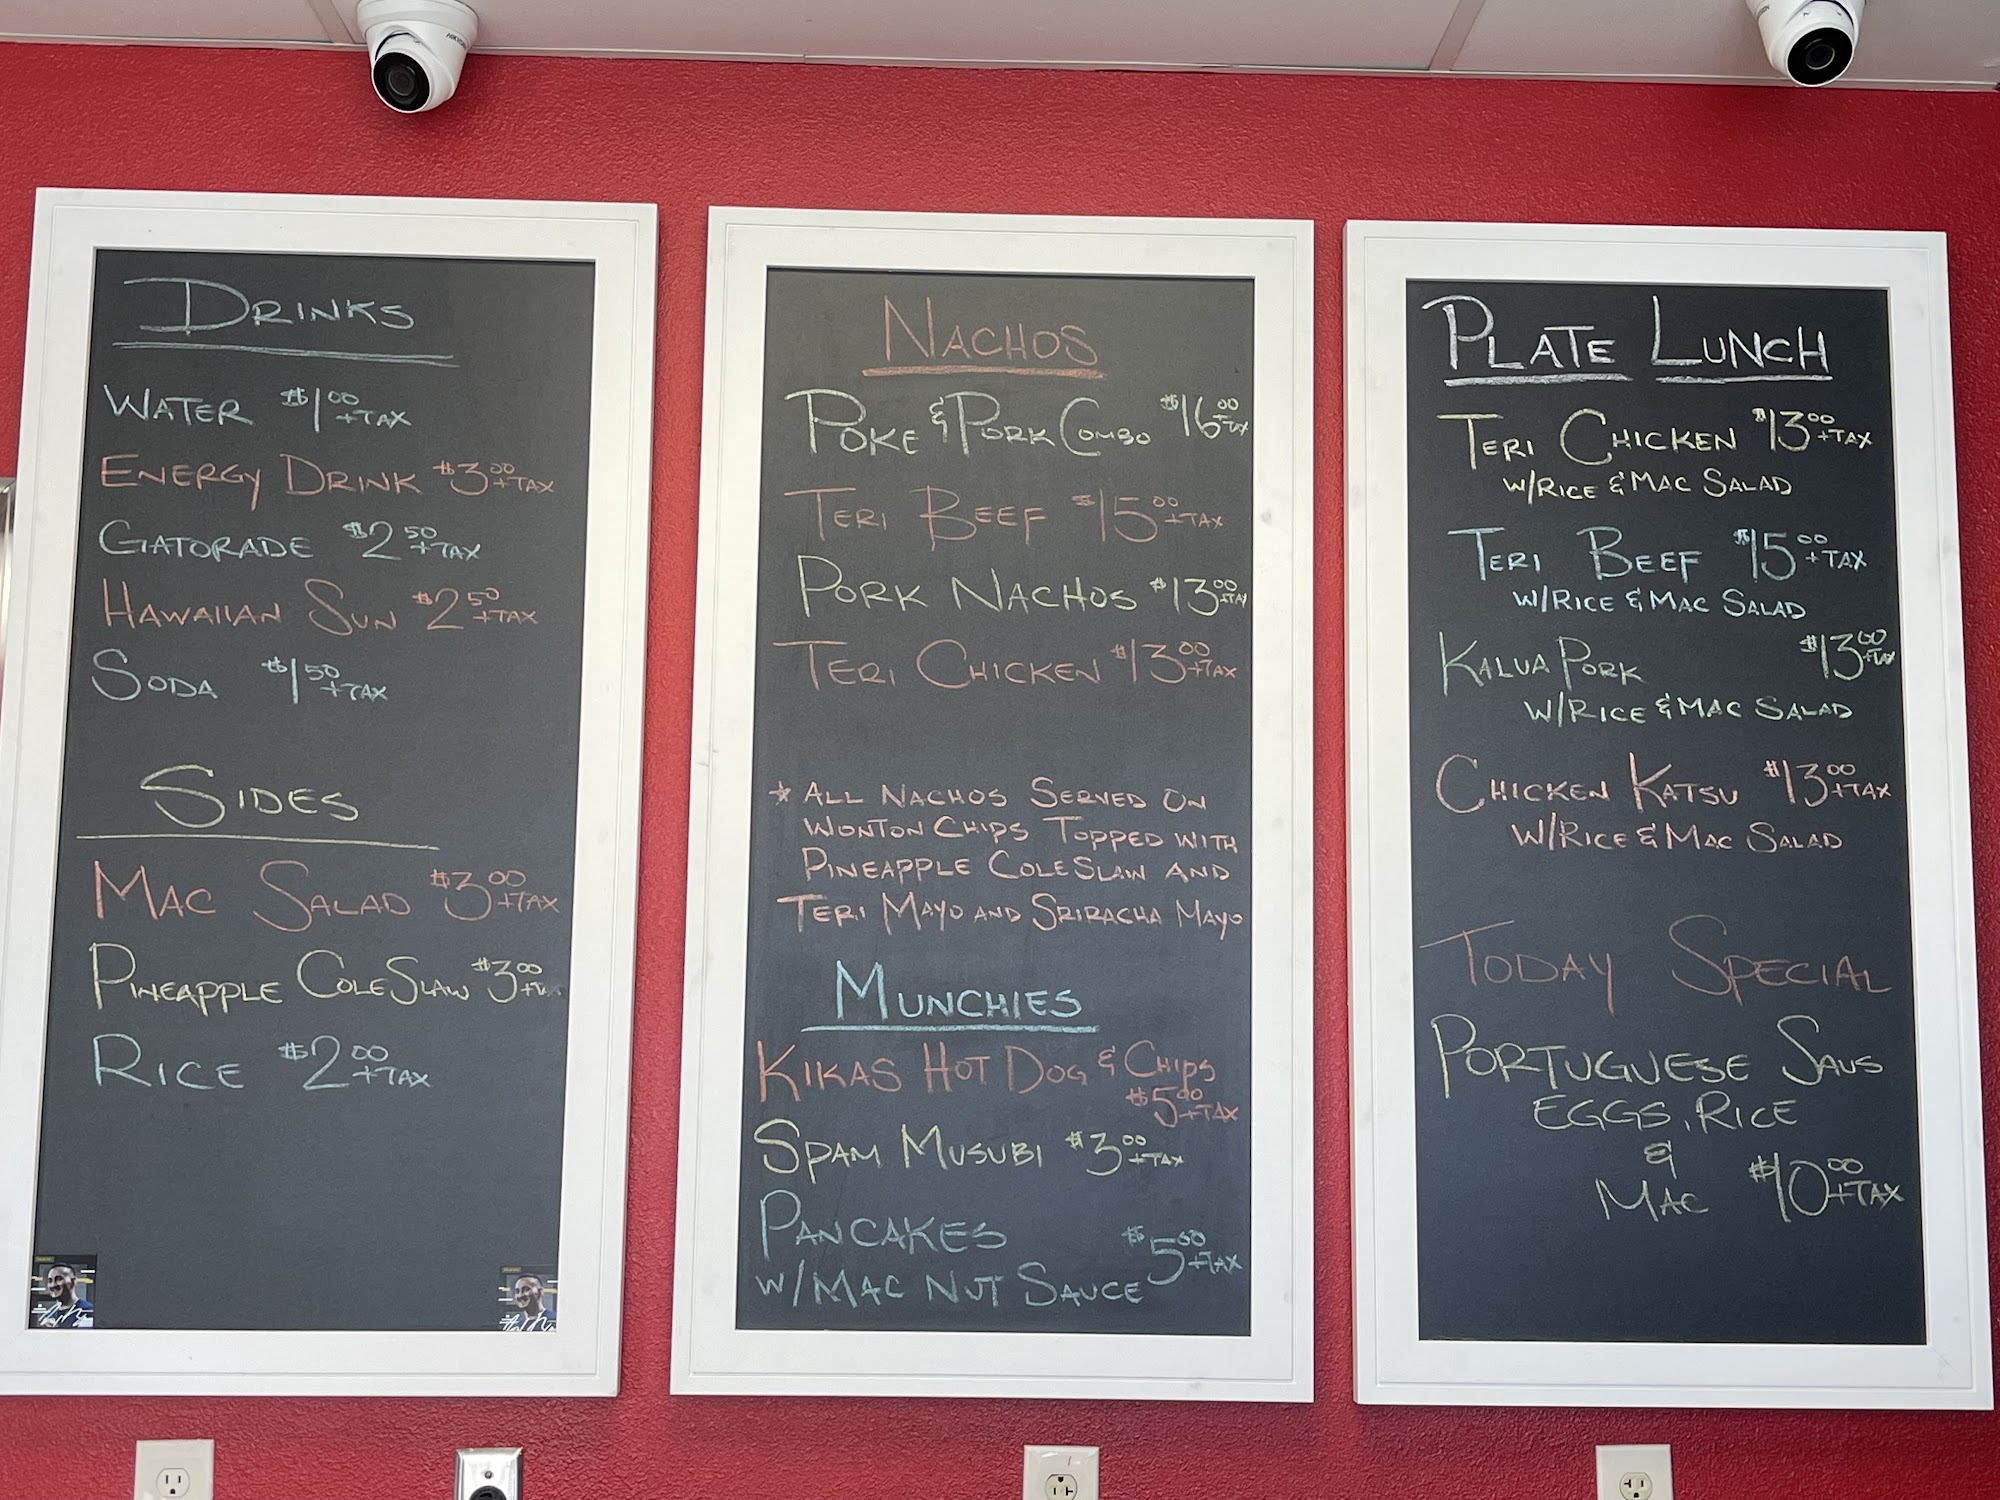 HIKVISION
DRINKS
WATER $1.00 +TAX
ENERGY DRINK $3.00 +TAX
GATORADE $2.50 +TAX
HAWAIIAN SUN $2.50 +TAX
SODA $1.50 +TAX
SIDES
MAC SALAD $3.00 +TAX
PINEAPPLE COLESLAW $3.00
RICE $2.00 +TAX
NACHOS
POKE & PORK COMBO $16.00 +TAX
TERI BEEF $15.00 +TAX
PORK NACHOS $13.00 +TAX
TERI CHICKEN $13.00 +TAX
* ALL NACHOS SERVED ON
WONTON CHIPS TOPPED WITH
PINEAPPLE COLESLAW AND
TERI MAYO AND SRIRACHA MAYO
MUNCHIES
KIKAS HOT DOG & CHIPS
$5.00 +TAX
SPAM MUSUBI $3.00 +TAX
PANCAKES $5.00 +TAX
W/MAC NUT SAUCE
PLATE LUNCH
TERI CHICKEN $13.00 +TAX
W/RICE & MAC SALAD
TERI BEEF $15.00 +TAX
W/RICE & MAC SALAD
KALUA PORK $13.00 +TAX
W/RICE & MAC SALAD
CHICKEN KATSU $13.00 +TAX
W/RICE & MAC SALAD
TODAY SPECIAL
PORTUGUESE SAUS
EGGS, RICE
&
MAC $10.00 +TAX